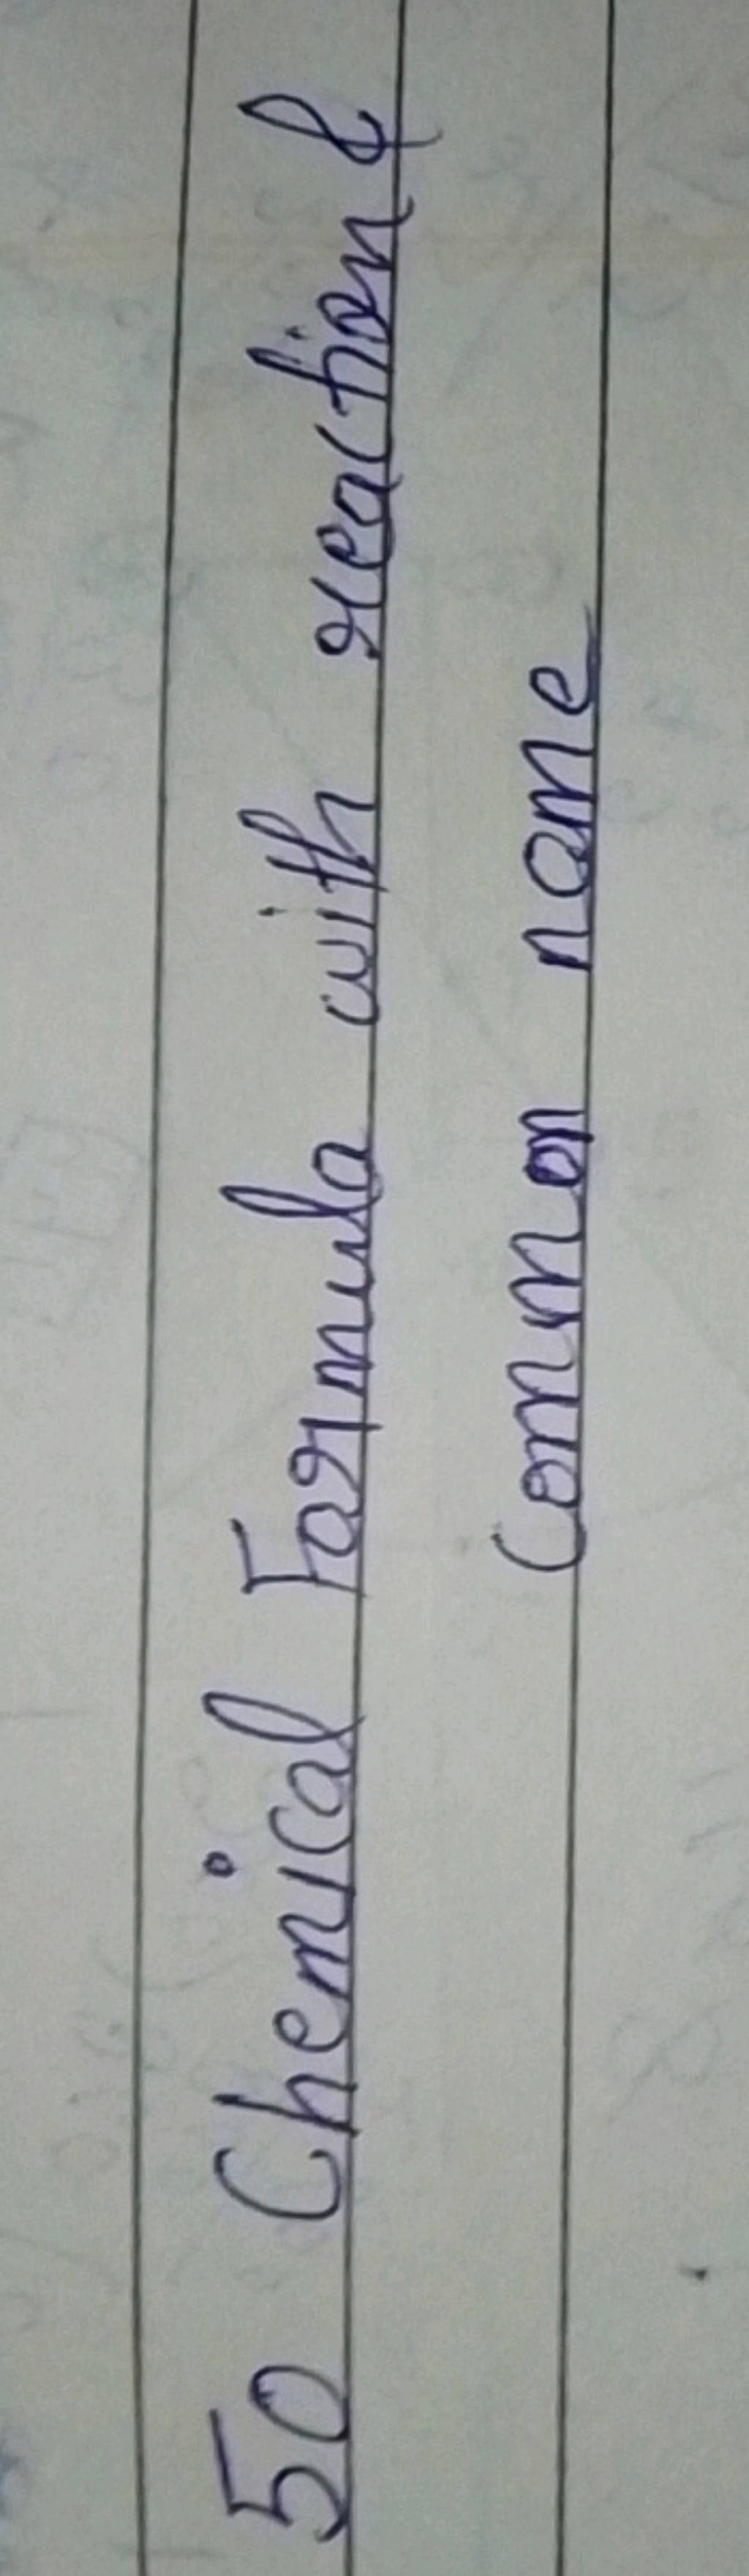 50 Chemical Formula with reaction &
Common name